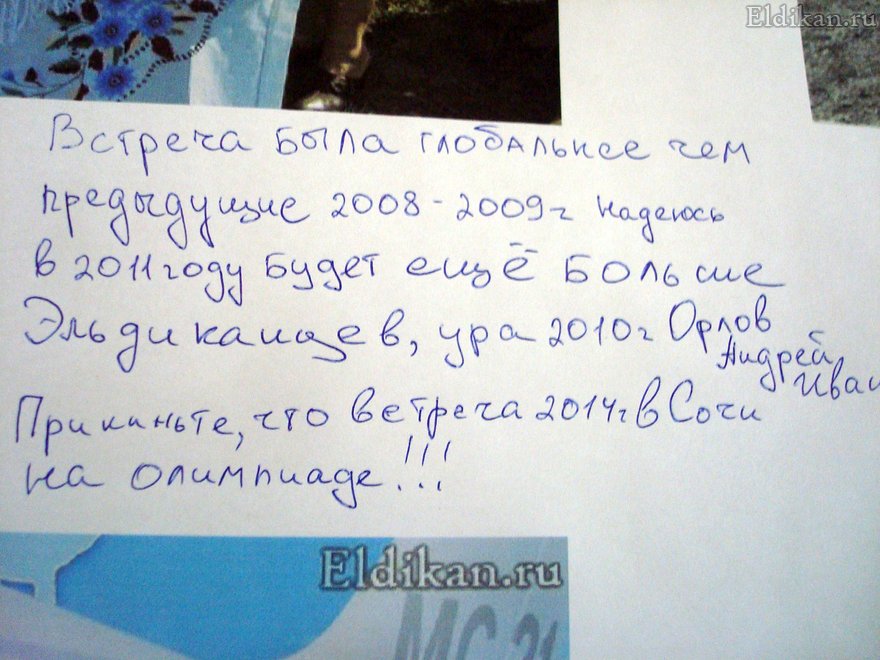 Eldikan.ru
Встреча была глобальнее чем
предыдущие 2008-2009г надеюсь
в 2011 году будет ещё больше
Эльдиканцев, ура 2010г Орлов
Андрей
Иван
Прикиньте, что встреча 2014г в Сочи
на олимпиаде!!!
Eldikan.ru
МС 21